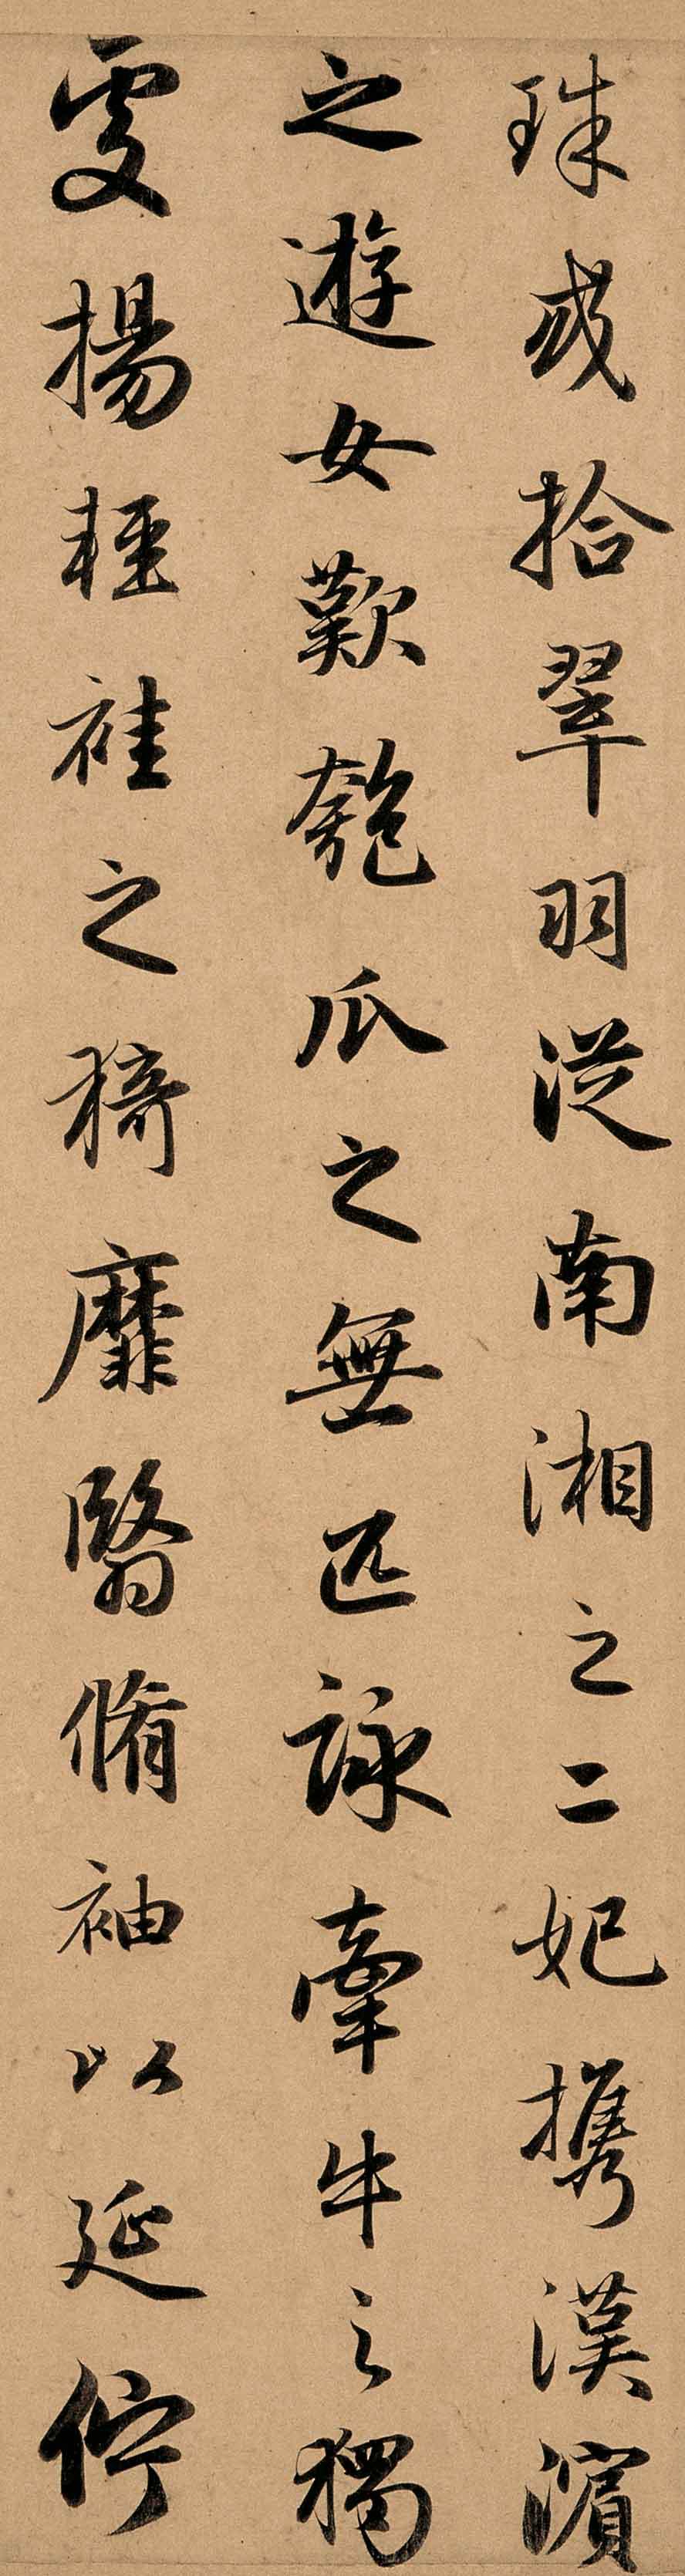 珠或拾翠羽從南湘之二妃攜漢濱
之遊女歎匏瓜之無匹詠牽牛之獨
處揚輕袿之猗靡翳脩袖以延佇